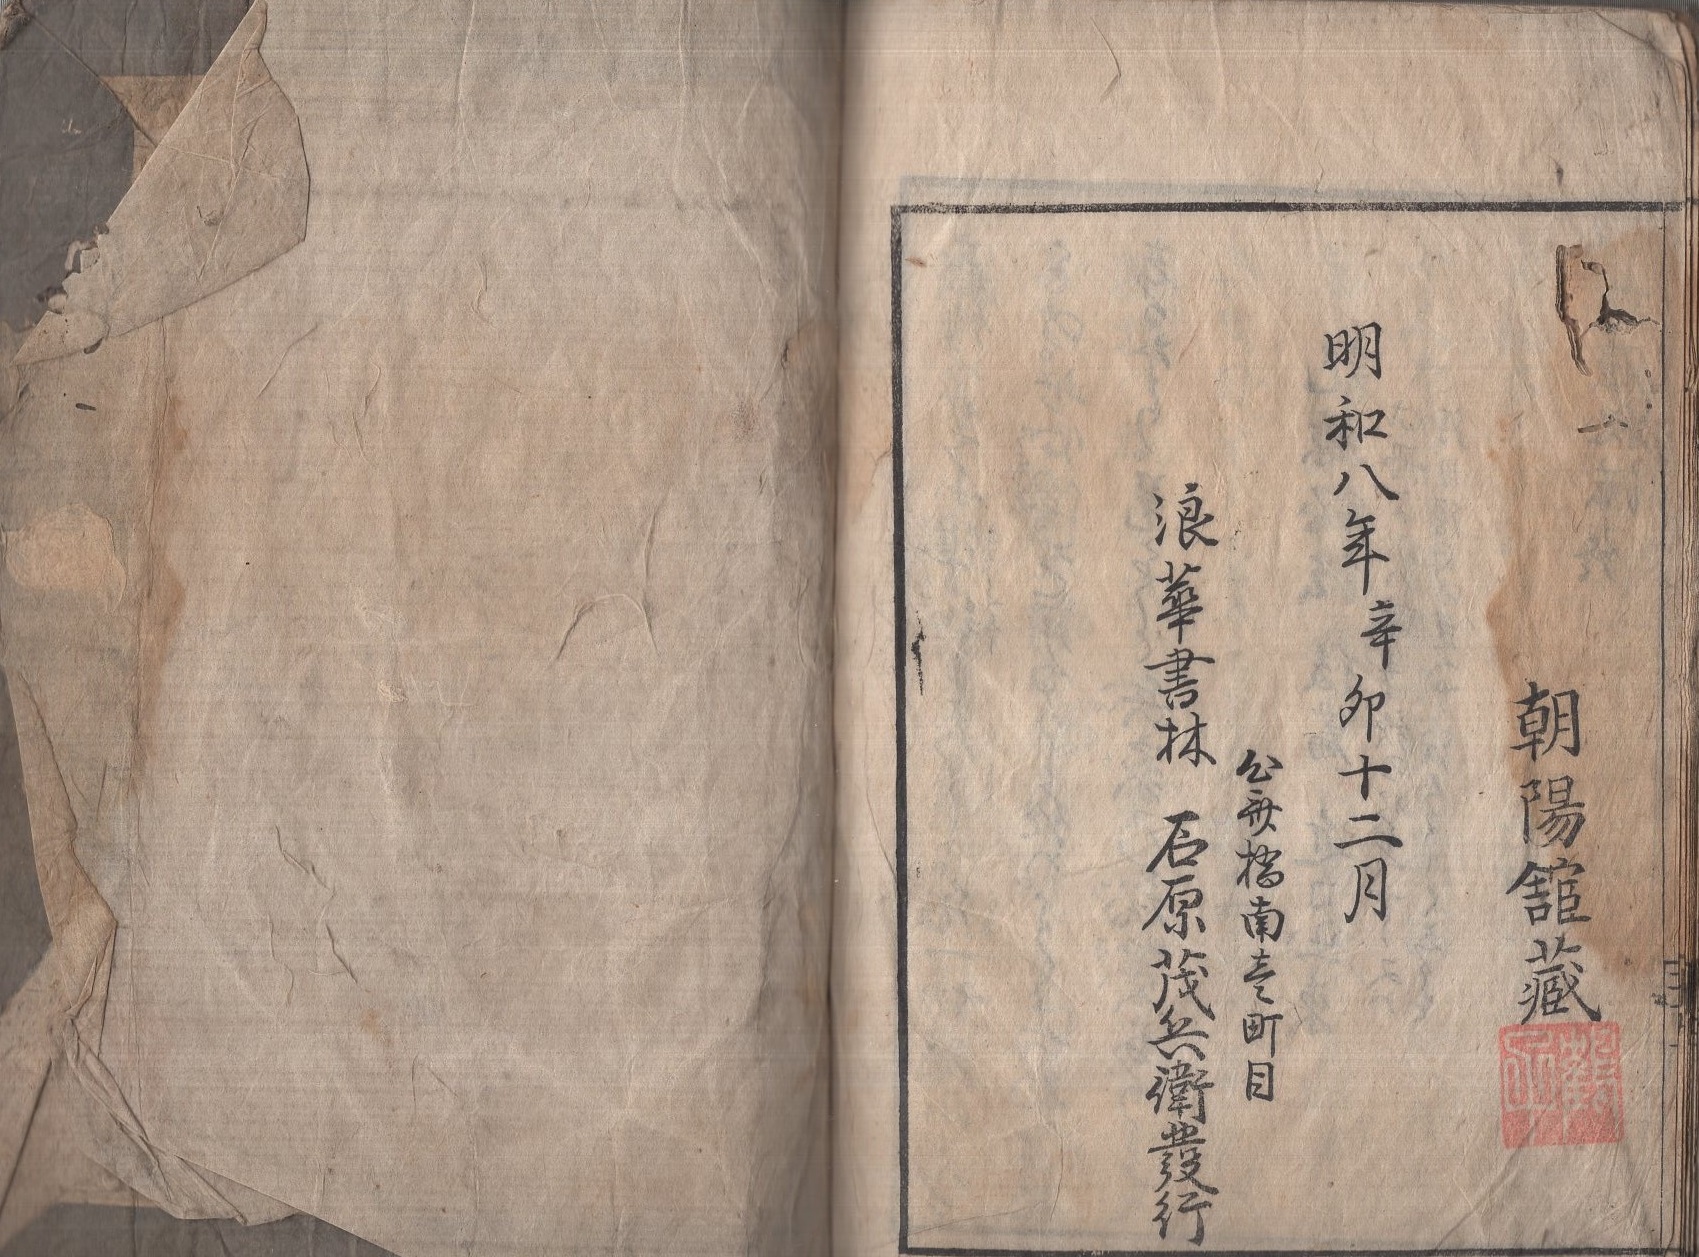 朝陽舘藏
明和八年辛卯十二月
公無橋南壱町目
浪華書林 石原茂兵衛發行